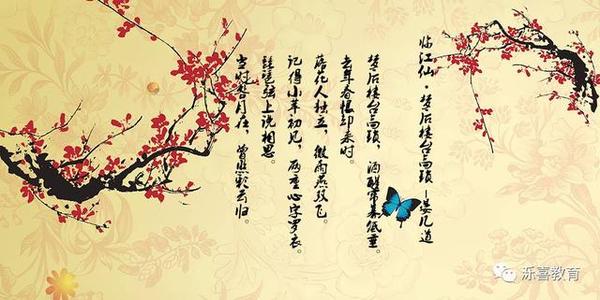 临江仙·梦后楼台高锁-晏几道
梦后楼台高锁，酒醒帘幕低垂。
去年春恨却来时。
落花人独立，微雨燕双飞。
记得小苹初见，两重心字罗衣。
琵琶弦上说相思。
当时明月在，曾照彩云归。
泺喜教育